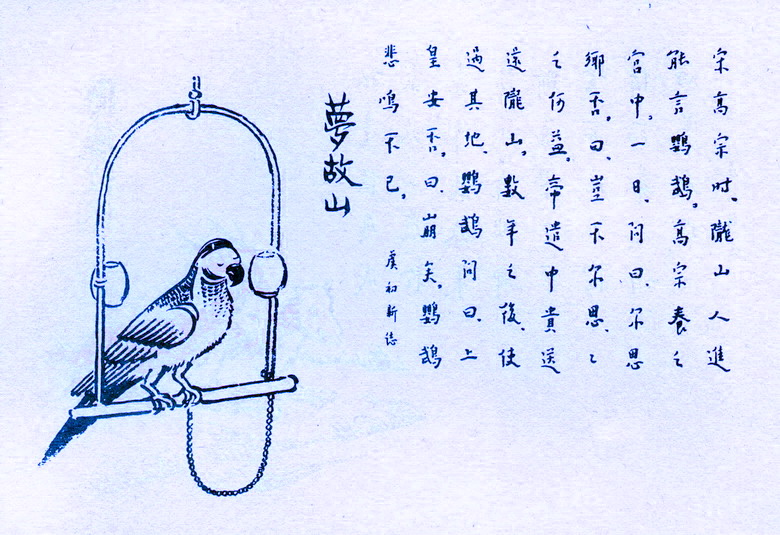 宋高宗时、隴山人進
能言鸚鵡。高宗養之
宮中。一日、问曰、尔思
鄉否。曰、豈不尔思、思
之何益。帝遣中貴送
還隴山。数年之後、使
過其地、鸚鵡问曰、上
皇安否。曰、崩矣。鸚鵡
悲鳴不已。
虞初新志
夢故山